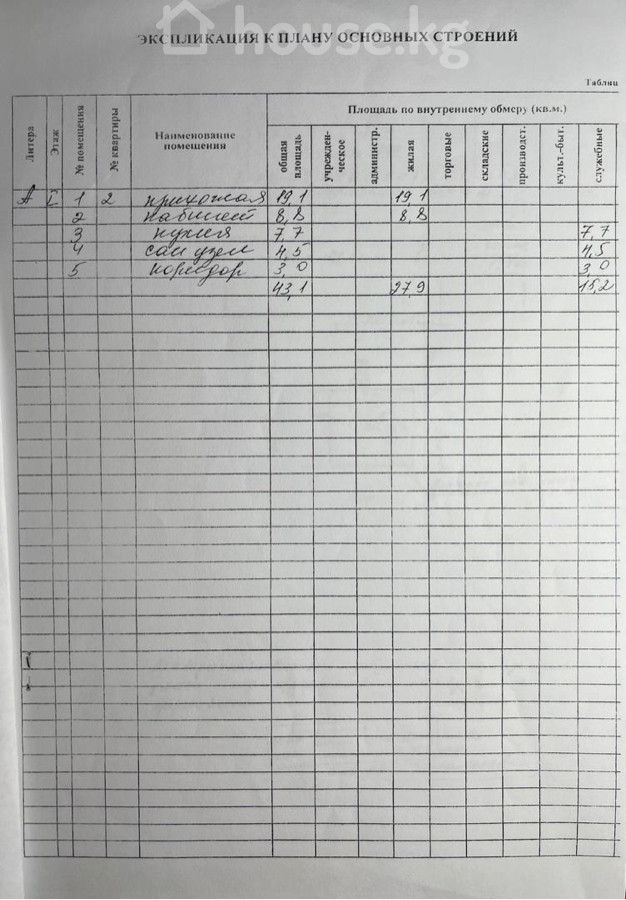 house.kg
ЭКСПЛИКАЦИЯ К ПЛАНУ ОСНОВНЫХ СТРОЕНИЙ
Таблиц
Литера
Этаж
№ помещения
№ квартиры
Наименование
помещения
Площадь по внутреннему обмеру (кв.м.)
общая
площадь
учрежден-
ческое
администр.
жилая
торговые
складские
производст.
культ.-быт.
служебные
А I 1 2 прихожая 19,1 19,1
2 кабинет 8,8 8,8
3 кухня 7,7 7,7
4 сан узел 4,5 4,5
5 коридор 3,0 3,0
43,1 27,9 15,2